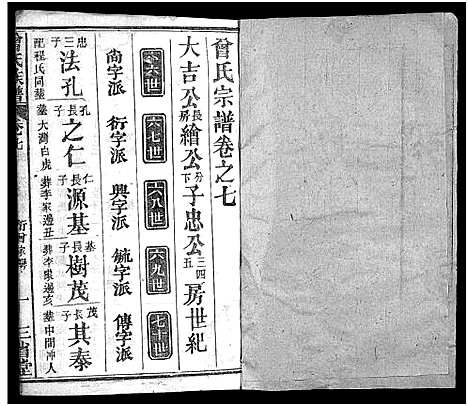 曾氏宗譜卷之七
大吉公長房繪公分下子忠公三四五房世紀
六六世
尚字派
六七世
衍字派
六八世
興字派
六九世
毓字派
七十世
傳字派
忠三子 法孔
配程氏同塟
孔長子 之仁
塟大灣白虎
仁長子 源基
葬李家邊丑
基長子 樹茂
葬李家邊亥
茂長子 其泰
塟中間冲人
曾氏宗譜
卷之七
一
三省堂